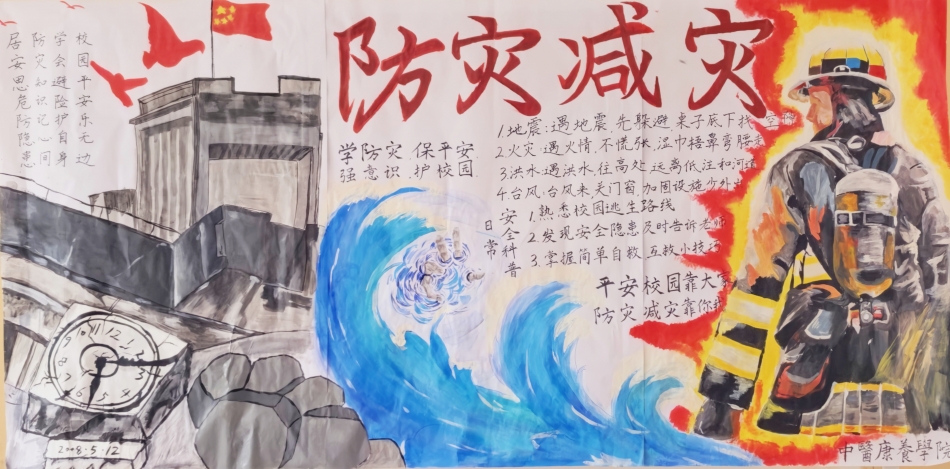 校园平安乐无边
学会避险护自身
防灾知识记心间
居安思危防隐患
防灾减灾
学防灾 保平安
强意识 护校园
1.地震:遇地震,先躲避,桌子底下找
2.火灾:遇火情,不慌张,湿巾捂鼻弯腰走
3.洪水:遇洪水,往高处,远离低注和河道
4.台风:台风来,关门窗,加固设施少外出
日常
安全科普
1.熟悉校园逃生路线
2.发现安全隐患及时告诉老师
3.掌握简单自救、互救小技巧
平安校园靠大家
防灾减灾靠你我
2008·5·12
中醫康養學院